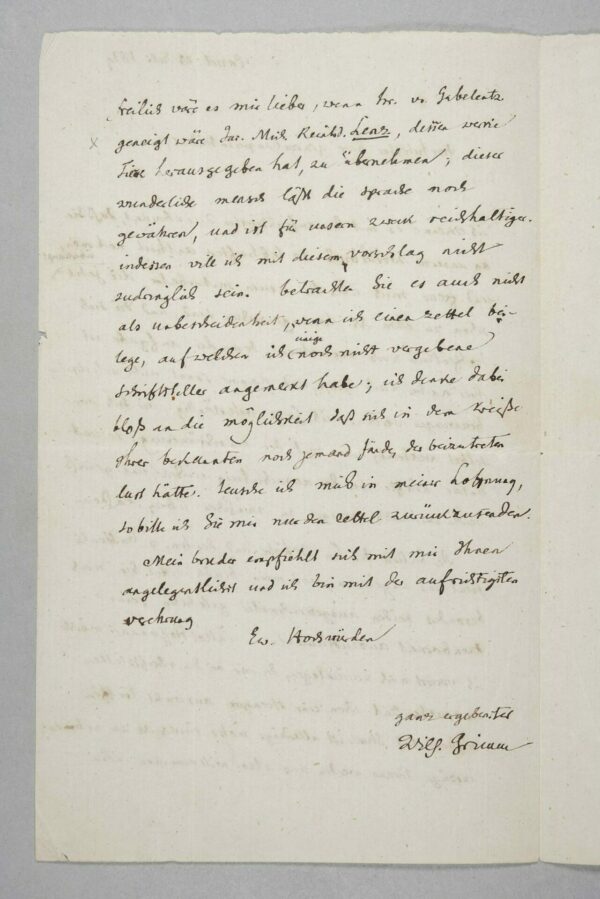 freilich wäre es mir lieber, wenn hr. v. Gabelentz
geneigt wäre Jac. Mich Reinhd. Lenz, dessen werke
Tieck herausgegeben hat, zu übernehmen; dieser
wunderliche mensch läßt die sprache noch
gewähren, und ist für unsern zweck reichhaltiger.
indessen will ich mit diesem vorschlag nicht
zudringlich sein. betrachten Sie es auch nicht
als unbescheidenheit, wenn ich einen zettel bei-
lege, auf welchen ich einige noch nicht vergebene
schriftsteller angemerkt habe; ich denke dabei
bloß an die möglichkeit daß sich in dem kreiße
Ihrer bekannten noch jemand fände, der beizutreten
lust hätte. teusche ich mich in meiner hoffnung,
so bitte ich Sie mir nur den zettel zurückzusenden.
Mein bruder empfiehlt sich mit mir Ihnen
angelegentlichst und ich bin mit der aufrichtigsten
verehrung
Ew. Hochwürden
ganz ergebenster
Wilh. Grimm